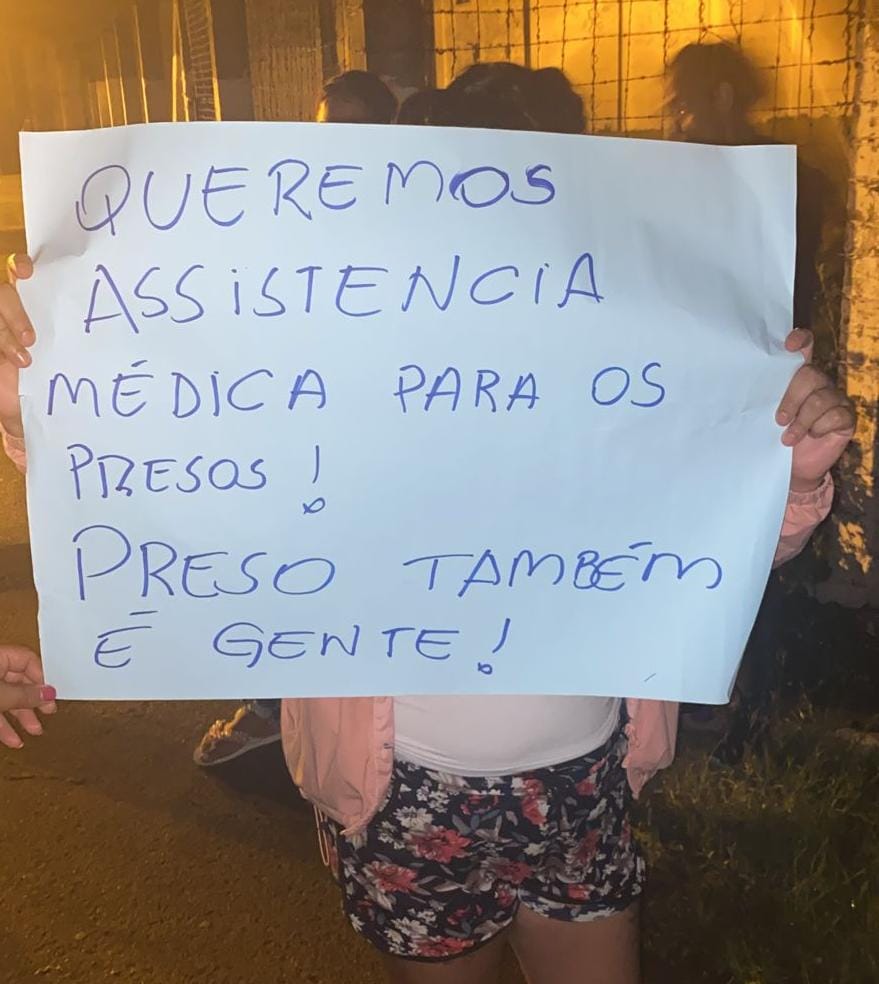 QUEREMOS
ASSiSTENCiA
MÉDiCA PARA OS
PRESOS!
PRESO TAMBÉM
É GENTE!